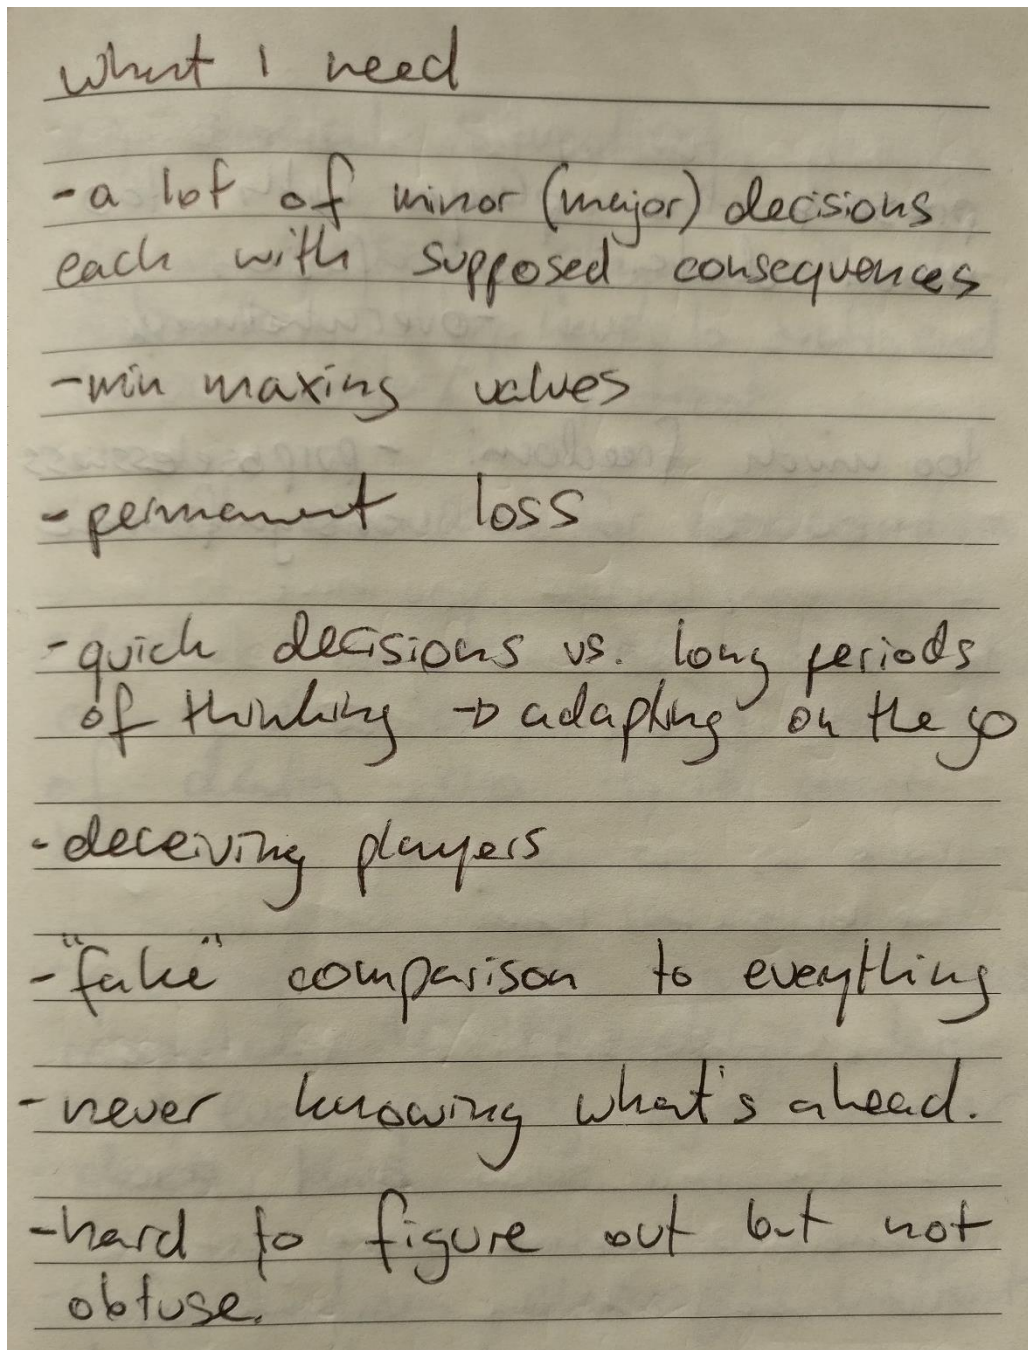 what I need
- a lot of minor (major) decisions
each with supposed consequences
- min maxing values
- permanent loss
- quick decisions vs. long periods
of thinking → adapting on the go
- deceiving players
- "fake" comparison to everything
- never knowing what's ahead.
- hard to figure out but not
obtuse.